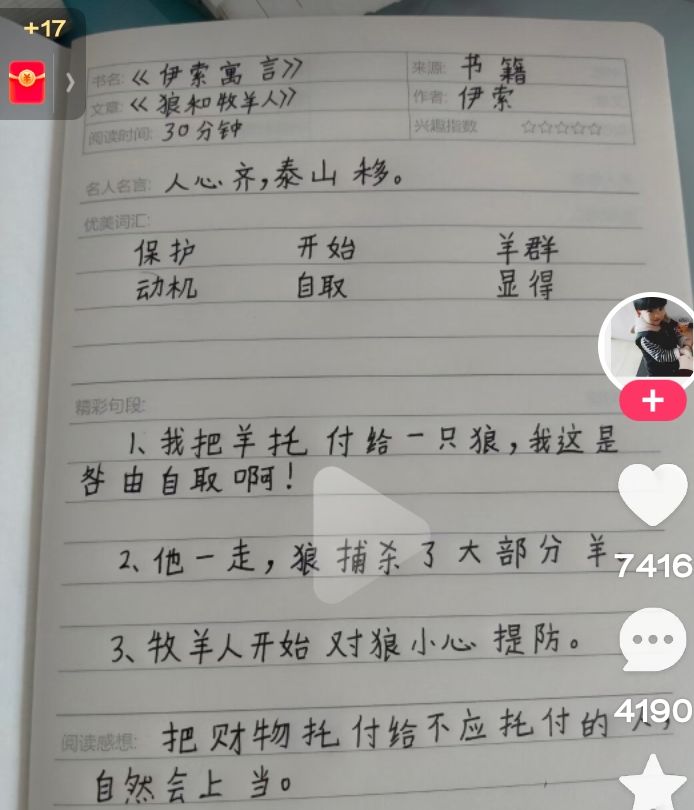 +17
书名:《伊索寓言》 来源: 书籍
文章:《狼和牧羊人》 作者: 伊索
阅读时间: 30分钟 兴趣指数 ☆☆☆☆☆
名人名言: 人心齐,泰山移。
优美词汇:
保护 开始 羊群
动机 自取 显得
精彩句段:
1、我把羊托付给一只狼,我这是
咎由自取啊!
2、他一走,狼捕杀了大部分羊
7416
3、牧羊人开始对狼小心提防。
4190
阅读感想: 把财物托付给不应托付的人,
自然会上当。